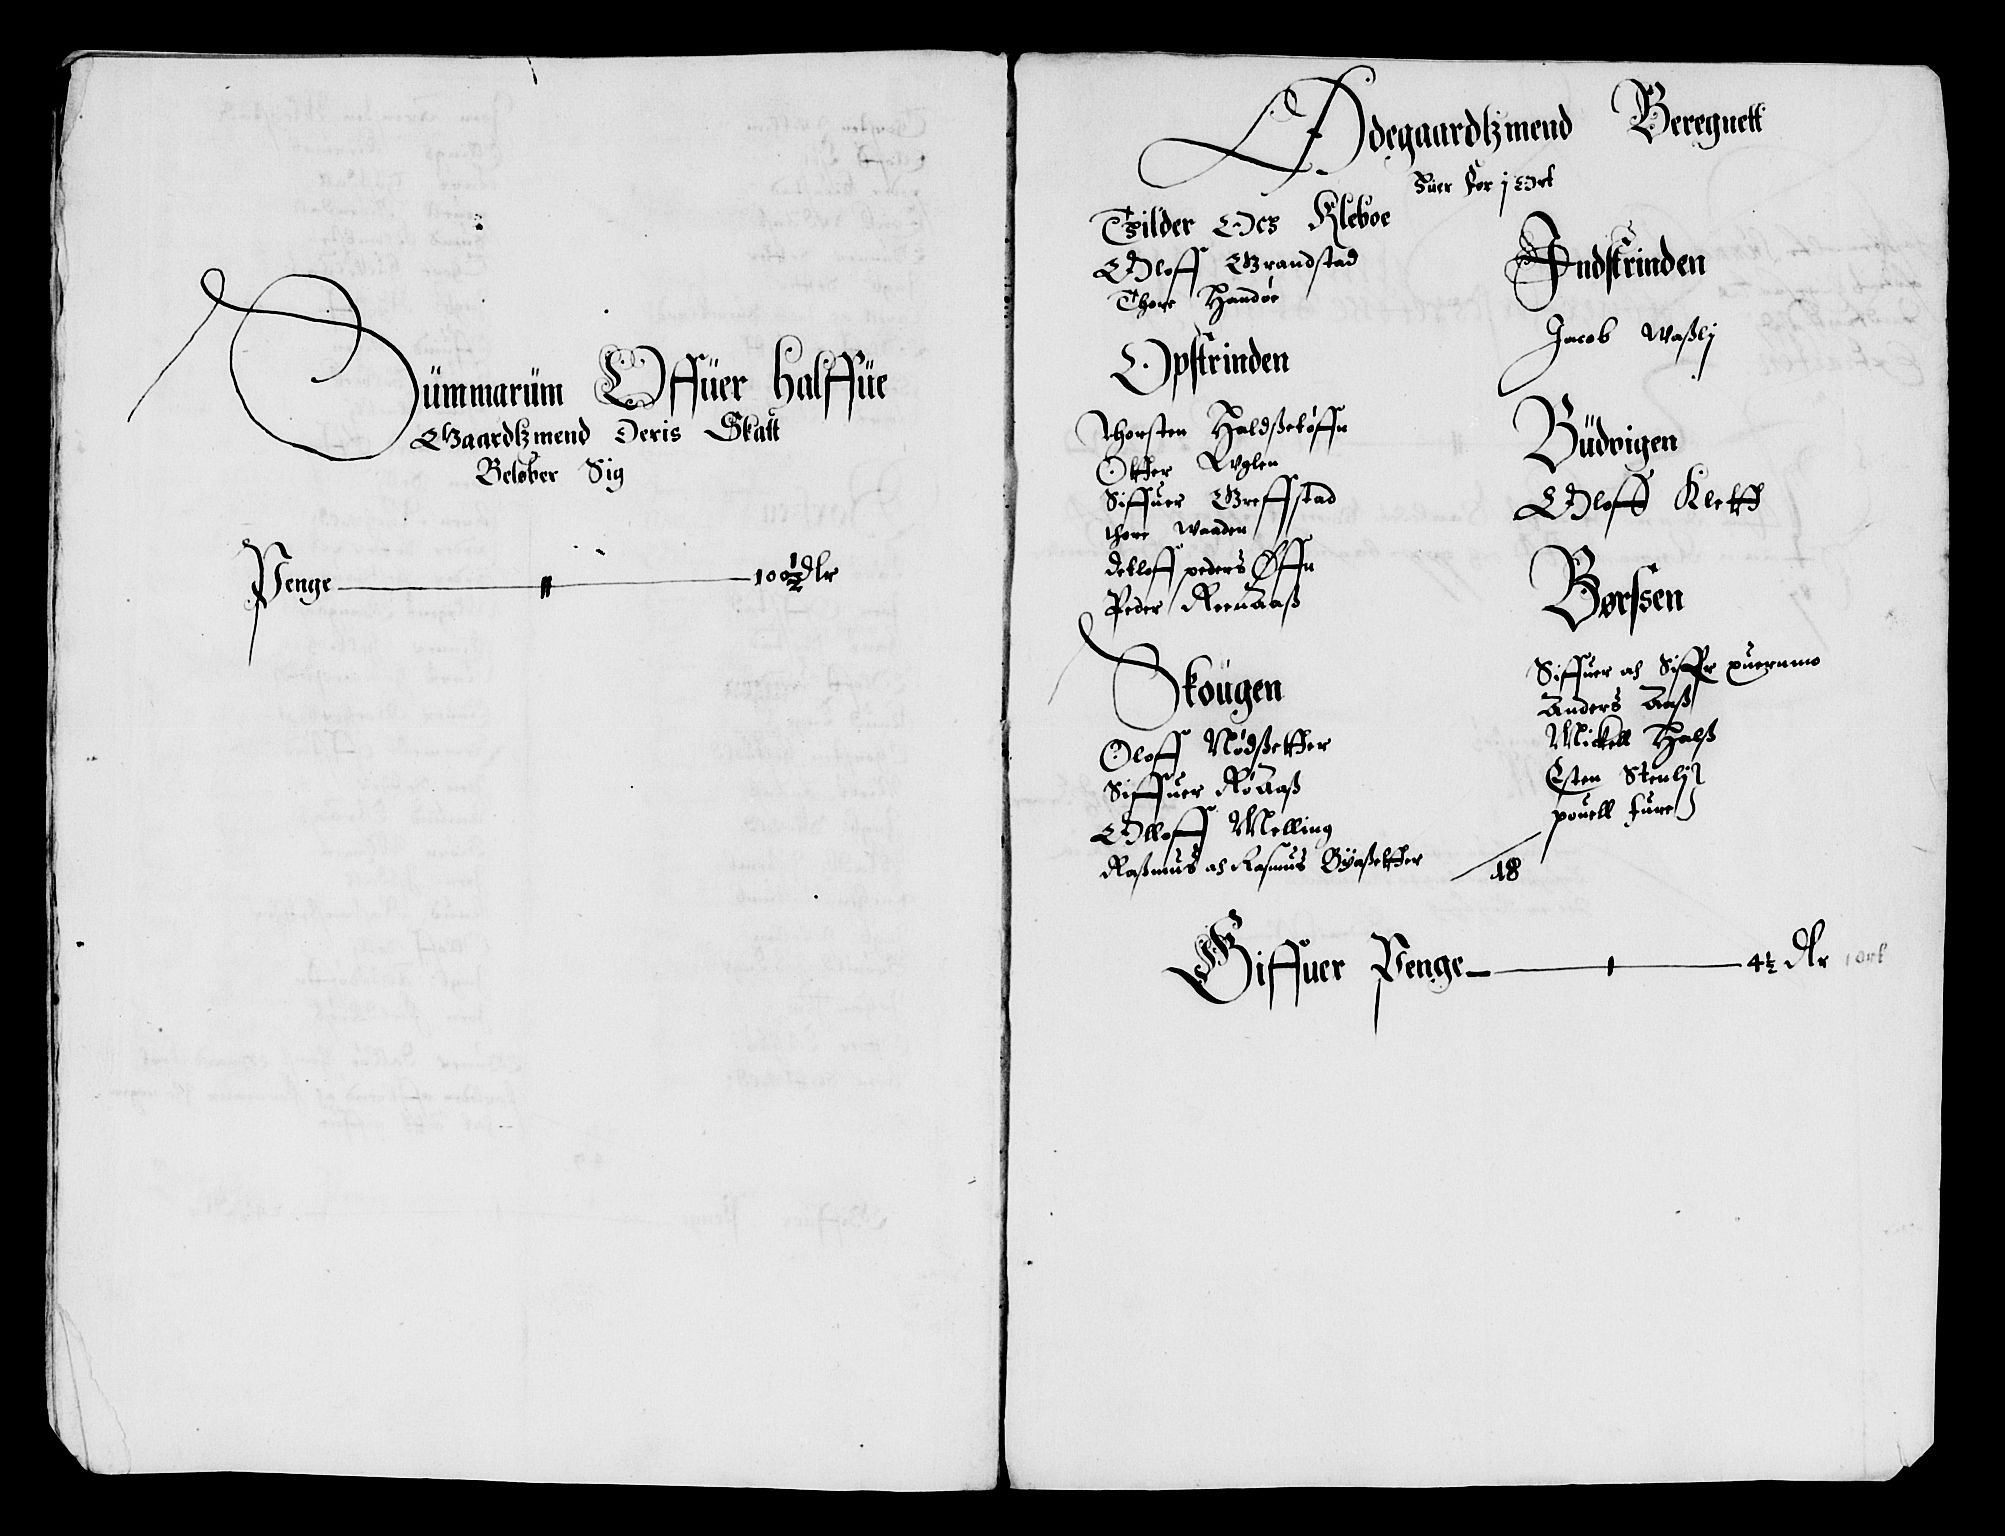 Summarüm Offüer halffüe
Gaardtzmend Deris Skatt
Beløber Sig
Penge — 100½ Dlr
Ødegaardtzmend Beregnett
huer for j Ort
Tilder Oes Kleboe
Oloff Grandstad
Thore Handøe
Opstrinden
Thorsten Haldßetøffn
Otther Ryglen
Siffuer Greffstad
thore Waaden
detloff peders Øffn
Peder ReenAaß
Skougen
Oloff Nødßetther
Siffuer RøAaß
Olloff Melling
Raßmus och Rasmus Byaßetther
Indstrinden
Jacob Waßlj
Büdvigen
Oloff Klefth
Børssen
Siffuer och Siffr puernmo
Anders Aaß
Mickell Halß
Esten Stenlj
pouell fure
18
Giffuer Penge — 4½ Dlr 1 ort